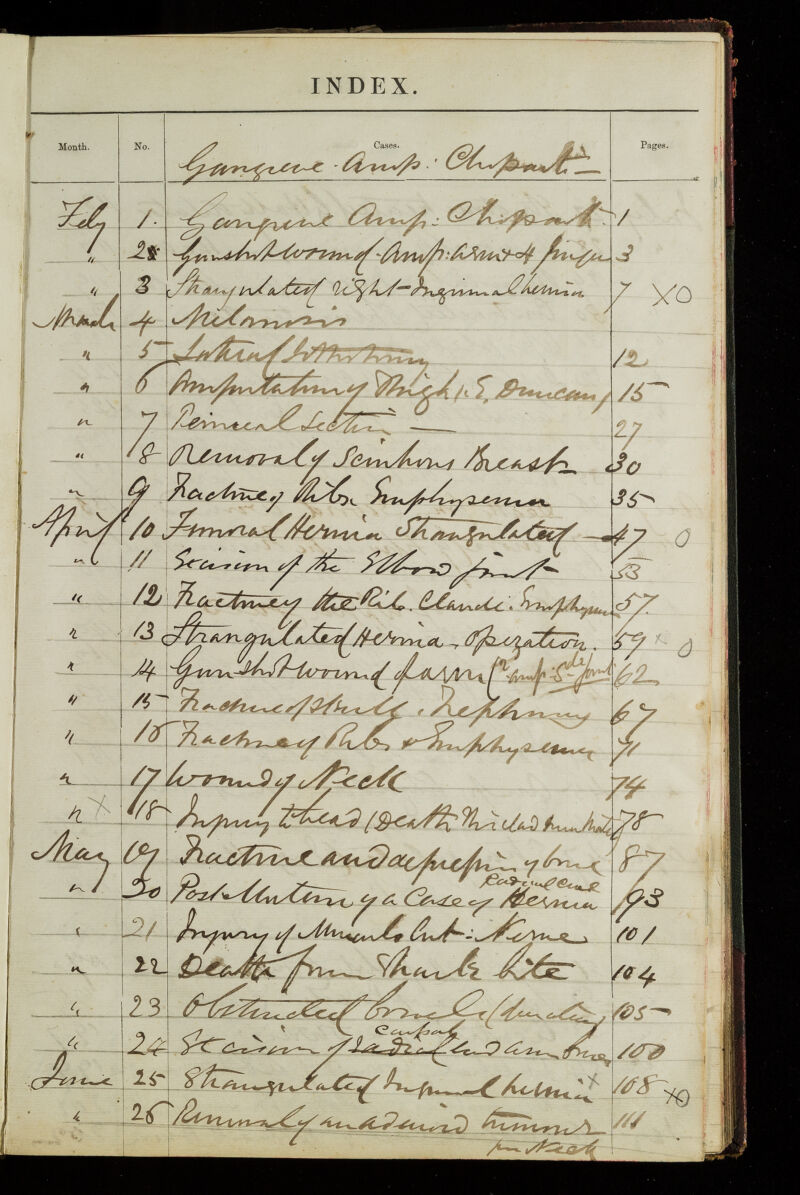 INDEX.
Month. No. Cases. Pages.
Gangrene Amp: Chopart –
Feby 1. Gangrene Amp: Chopart. 1
" 2 Gunshot wound. Amp: arm & 4 finger 3
" 3 Strangulated right Inguinal hernia 7 XO
March 4 Melanosis
" 5 Lateral Lithotomy 12
" 6 Amputation of Thigh. E. Duncan 15
" 7 Perineal Section — 27
" 8 Removal of Scirrhous Breast 30
" 9 Fracture of Ribs Emphysema 35
April 10 Femoral Hernia Strangulated — 47 O
" 11 Excision of the Elbow joint 53
" 12 Fracture of the Rib. Emphysema 57.
" 13 Strangulated Hernia. Operation. 59 x O
" 14 Gunshot wound of arm ( amp: joint 62
" 15 Fracture of Skull. Trephining 67
" 16 Fracture of Ribs & Emphysema 71
" 17 Wound of Neck 74
" X 18 Injury to head (Death 78
May 19 Fracture and depression of bone 87
Radical Cure
" 20 Post Mortem of a Case of Hernia 93
" 21 Injury of Musculo Cut: Nerve 101
" 22 Death from Shark bite 104
" 23 Obstructed bowels 105
carpal
" 24 Excision of radial end 100
June 25 Strangulated Inguinal hernia x 108 XO
" 26 Removal of an adenoid tumour 111
in Neck